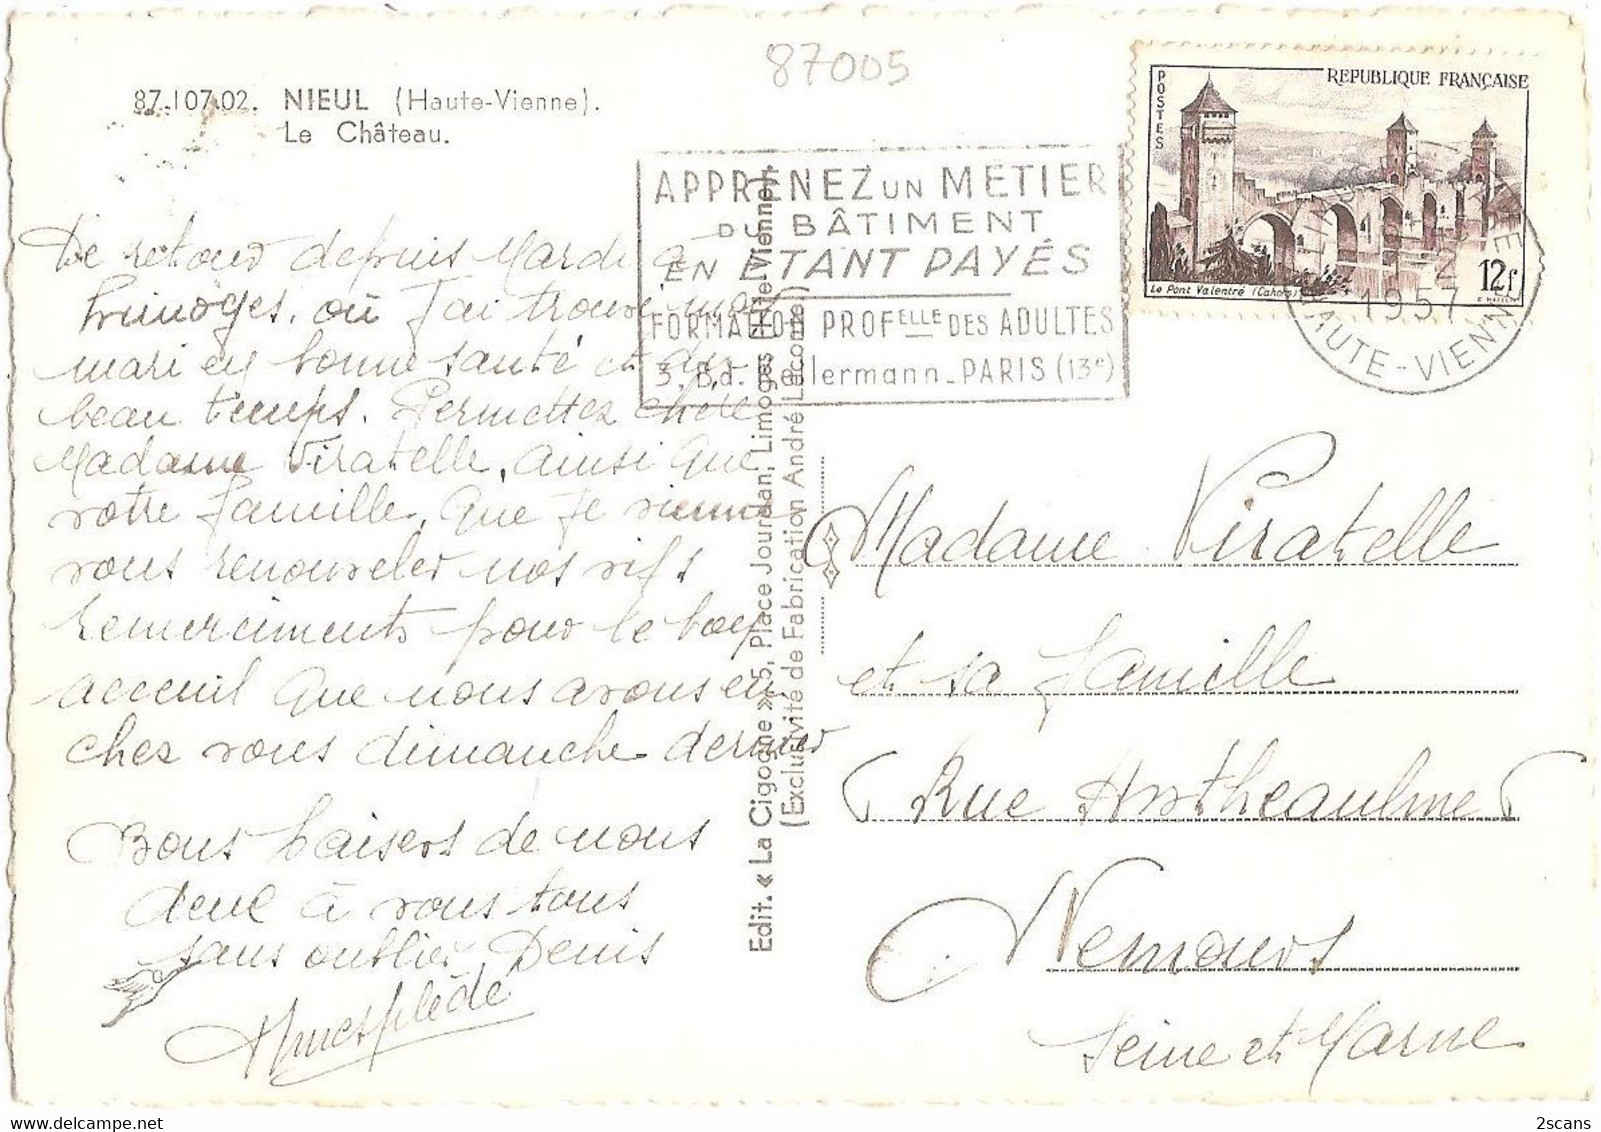 87005
87-107-02. NIEUL (Haute-Vienne).
Le Château.
De retour depuis Mardi à
Limoges. où J'ai trouvé mon
mari en bonne santé et du
beau temps. Permettez chère
Madame Viratelle, ainsi que
votre famille, que je vienne
vous renouveler nos vifs
remerciments pour le bon
acceuil que nous avons eu
chez vous dimanche dernier
Bons baisers de nous
deux à vous tous
sans oublier Denis
APPRENEZ UN MÉTIER
DU BÂTIMENT
EN ÉTANT PAYÉS
FORMATION PROFELLE DES ADULTES
3. Bd. Kellermann - PARIS (13e)
POSTES
REPUBLIQUE FRANÇAISE
Le Pont Valentré (Cahors)
12f
1957
HAUTE-VIENNE
Edit. « La Cigogne » 5, Place Jourdan, Limoges (Hte-Vienne).
(Exclusivité de Fabrication André Lacome)
Madame Viratelle
et sa famille
Rue
Nemours
Seine et Marne
2scans